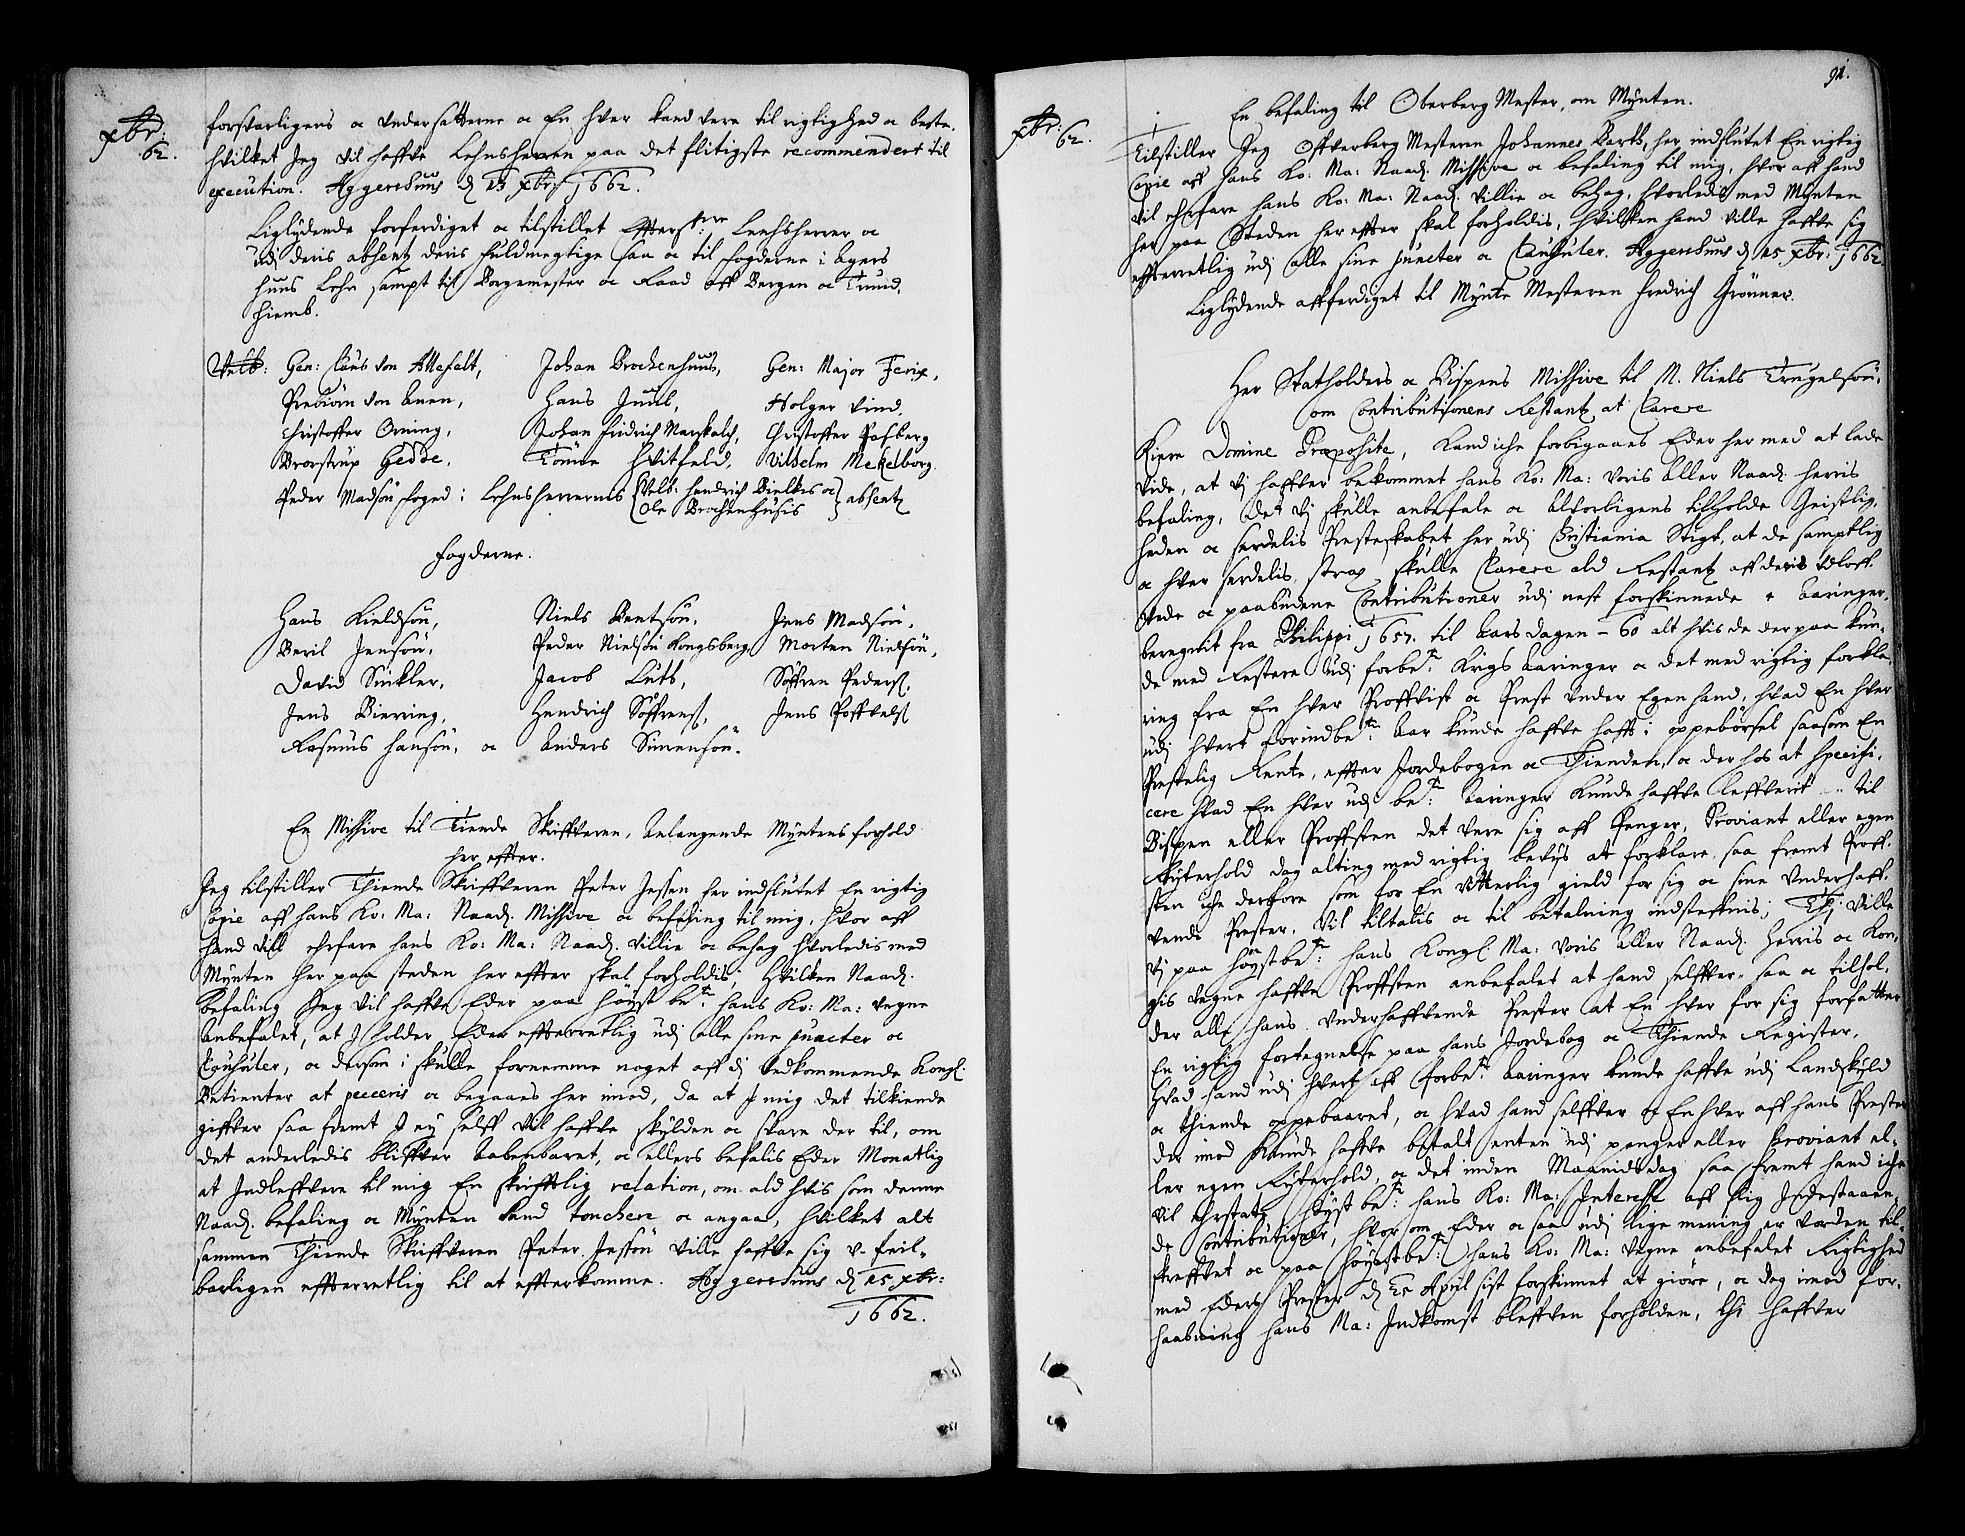 xbr:
62.
forsvarligens oc Undersatterne oc En hver kand vere til rigtighed oc beste.
hvilket Jeg vil haffve Lehnsherren paa det flitigste recommendert til
execution. Aggershuus d 15 xbr: 1662.
Liglydende forferdiget oc tilstillet Efterschr: Leehsherrer oc
udj deris absentz deris fuldmegtige saa oc til fogderne i Agers
huus Lehn sampt til Borgemester oc Raad aff Bergen oc Trund,
hiemb.
Velb: Gen: Claus von Allefelt, Johan Brochenhuus, Gen: Major Ferix,
Prebiørn von Anen, Hans Juul, Holger Vind,
Christoffer Orning, Johan Fridrich Marskalch, Christoffer Pasberg
Brostrup Gedde, Tønne Hvitfeld, Vilhelm Mekelborg.
Peder Madsøn foged i Lehnsherrernes Velb: Hendrich Bielkis oc absentz
Ole Brochenhusis
Fogderne.
Hans Kieldsøn, Niels Bentsøn, Jens Madsøn,
Beril Jensøn, Peder Nielsøn Kongsberg Morten Nielsøn,
David Sinkler, Jacob Luts, Søffren Peders:
Jens Bierring, Hendrich Søffrens: Jens Poffvels:
Rasmus Hansøn, oc Anders Simensøn.
En Missive til Tiende Skriffveren, Anlangende Myntens forhold
her effter.
Jeg tilstiller Thiende Skriffveren Peter Jessen her indslutet En rigtig
Copie aff hans Ko: Ma: Naad: Missive oc befaling til mig, hvor aff
hand vill ehrfare hans Ko: Ma: Naad: villie oc behag hvorledis med
Mynten her paa steden her effter skal forholdis, hvilken Naad:
befaling Jeg vil haffve Eder paa høyst be:te hans Ko: Ma: vegne
Anbefalet, at J holder Eder effterretlig udj alle sine puncter oc
Clausuler, oc dersom i skulle fornemme noget aff dj Vedkommende Kongl:
Betienter at peceris oc begaaes her imod, da at J mig det tilkiende
giffver saa fremt J ey self vil haffve skylden oc svare der til, om
det anderledis bliffver aabenbaret, oc ellers befalis Eder Monatlig
at Indleffvere til mig En skrifftlig relation, om ald hvis som denne
Naad: befaling oc Mynten kand touchere oc angaa, hvilket alt
sammen Thiende Skriffveren Peter Jessøn ville haffve sig u-feil-
barligen effterretlig til at effterkomme. Aggershuus d 15 xbr:
1662.
91.
xbr:
62.
En befaling til Oberberg Mester, om Mynten.
Tilstiller Jeg Offverberg Mesteren Johannes Barth, her indslutet En rigtig
Copie aff hans Ko: Ma: Naad: Missive oc befaling til mig, hvor aff hand
vil ehrfare hans Ko: Ma: Naad: villie oc behag, hvorledis med Mynten
her paa Steden her effter skal forholdis, hvilken hand ville haffve sig
effterretlig udj alle sine puncter oc Clausuler. Aggershuus d 15 xbr: 1662.
Liglydende affferdiget til Mynte Mesteren Fredrich Grønner.
Her Statholders oc Bispens Missive til M. Niels Trugelsøn,
om Contributionens Restantz at Clarere
Kiere Domine Præposite, Kand iche forbigaaes Eder her med at lade
vide, at vj haffver bekommet hans Ko: Ma: voris Aller Naad: herris
befaling, det vj skulle anbefale oc Alvorligens tilholde Geistlig-
heden oc serdelis Presteskabet her udj Christiania Stigt, at de samptlig
oc hver serdelis, strax skulle Clarere ald Restantz aff deris udloff-
vede oc paabudene Contributioner udj nest forskinnede 4 Aaringer,
beregnit fra Philippi 1657. til Aarsdagen - 60 alt hvis de derpaa kun-
de med Restere udj forbe:te Krigs Aaringer oc det med rigtig forkla-
ring fra En hver Proffvist oc Prest under Egen hand, hvad En hver
udj hvert forindbe:te Aar kunde haffve hafft i oppebørsel saasom En
Prestelig Rente, effter Jordebogen oc Thienden, oc der hos at specifi-
cere hvad En hver udj be:te Aaringer kunde haffve Leffverit til
Bispen eller Proffsten det vere sig aff Penger, Proviant eller egen
Rytterhold dog alting med rigtig bevijs at forklare, saa fremt Proff-
sten iche derfore som for En vitterlig gield for sig oc sine Underhaff-
vends Prester, vil tiltalis oc til betalning indsteffnis; Thj ville
vj paa høystbe:te hans Kongl Ma: voris Aller Naad: Herris oc Kon,
gis vegne haffve Proffsten anbefalet at hand selffver saa oc tilhol-
der alle hans Underhaffvende Prester at En hver for sig forfatter
En rigtig fortegnelse paa hans Jordebog oc Thiende Register,
Hvad hand udj hvert aff forbe:te Aaringer kunde haffve udj Landskyld
oc thiende oppebaaret, oc hvad hand selffver oc En hver aff hans Prester
der imod kunde haffve betalt enten udj penger eller proviant el-
ler egen Rytterhold, oc det inden Maanidsdag saa fremt hand iche
vil ehrstate høyst be:te hans Ko: Ma: Interesse aff slig Indestaaen,
de Contributioner, hvor om Eder oc saa udj lige mening er vorden til-
skreffvet oc paa høystbe:te hans Ko: Ma: vegne anbefalet Rigtighed
med Eders Prester d 25 April sist forskinnet at giøre, oc dog imod for-
haabning hans Ma: Indkomst bleffven forholden, thi haffver